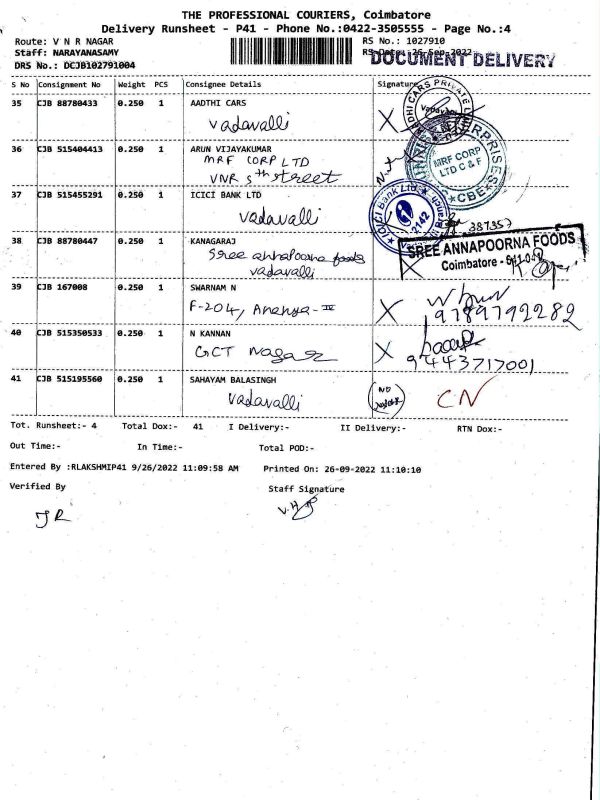 THE PROFESSIONAL COURIERS, Coimbatore
Delivery Runsheet - P41 - Phone No.:0422-3505555 - Page No.:4
Route: V N R NAGAR
RS No.: 1027910
Staff: NARAYANASAMY
RS Date: 26-Sep-2022
DOCUMENT DELIVERY
DRS No.: DCJB102791004
S No Consignment No Weight PCS Consignee Details Signature
35 CJB 88780433 0.250 1 AADTHI CARS
vadavalli X
36 CJB 515404413 0.250 1 ARUN VIJAYAKUMAR
MRF CORP LTD
VNR 5th street
MRF CORP
LTD C & F
CBE
37 CJB 515455291 0.250 1 ICICI BANK LTD
vadavalli
ICICI Bank Ltd.
2142
38 CJB 88780447 0.250 1 KANAGARAJ
Sree annapoorna foods
vadavalli
SREE ANNAPOORNA FOODS
Coimbatore
39 CJB 167008 0.250 1 SWARNAM N
F-204, Ananya-IV X
9789792282
40 CJB 515350533 0.250 1 N KANNAN
GCT Nagar X
9443717001
41 CJB 515195560 0.250 1 SAHAYAM BALASINGH
vadavalli CN
Tot. Runsheet:- 4 Total Dox:- 41 I Delivery:- II Delivery:- RTN Dox:-
Out Time:- In Time:- Total POD:-
Entered By :RLAKSHMIP41 9/26/2022 11:09:58 AM Printed On: 26-09-2022 11:10:10
Verified By Staff Signature